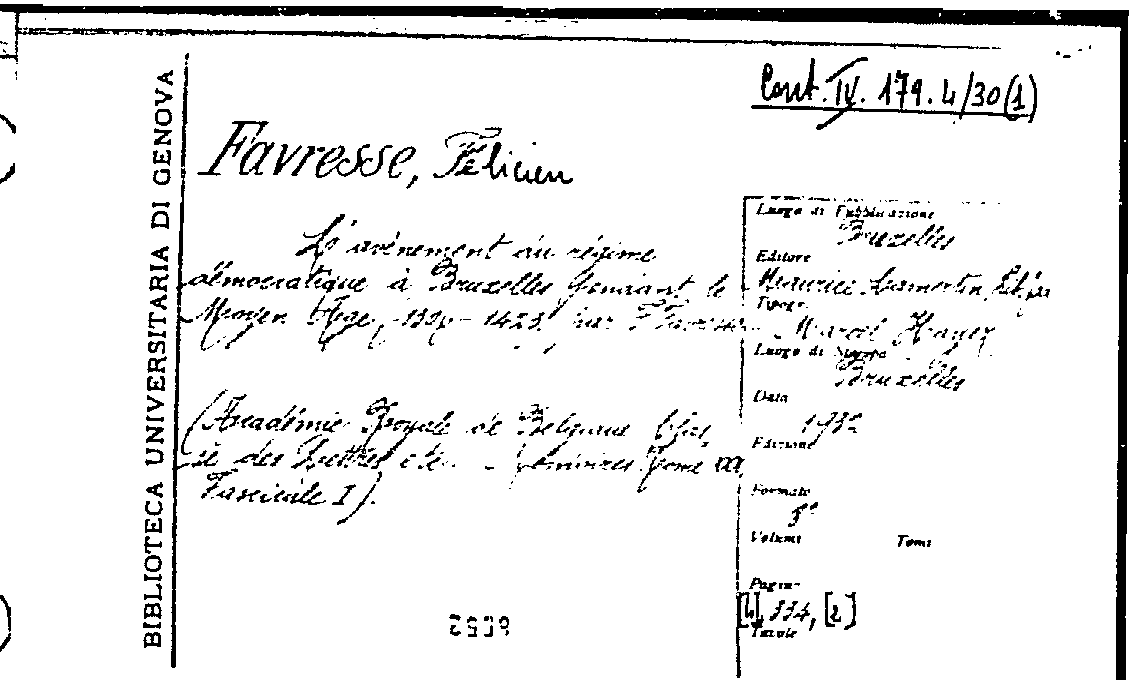 Cont. IV. 179.4/30(1)
BIBLIOTECA UNIVERSITARIA DI GENOVA
Favresse, Félicien
L'avènement du régime
démocratique à Bruxelles pendant le
Moyen Age, 1423, par F. Favresse
(Académie Royale de Belgique Clas
se des Lettres etc. - Mémoires Tome
Fascicule I).
Luogo di Pubblicazione
Bruxelles
Editore
Maurice Lamertin,
Tipogr.
Marcel Hayez
Luogo di Stampa
Bruxelles
Data
1932
Edizione
Formato
8°
Volumi Tomi
Pagine
[4], 334, [2]
Tavole